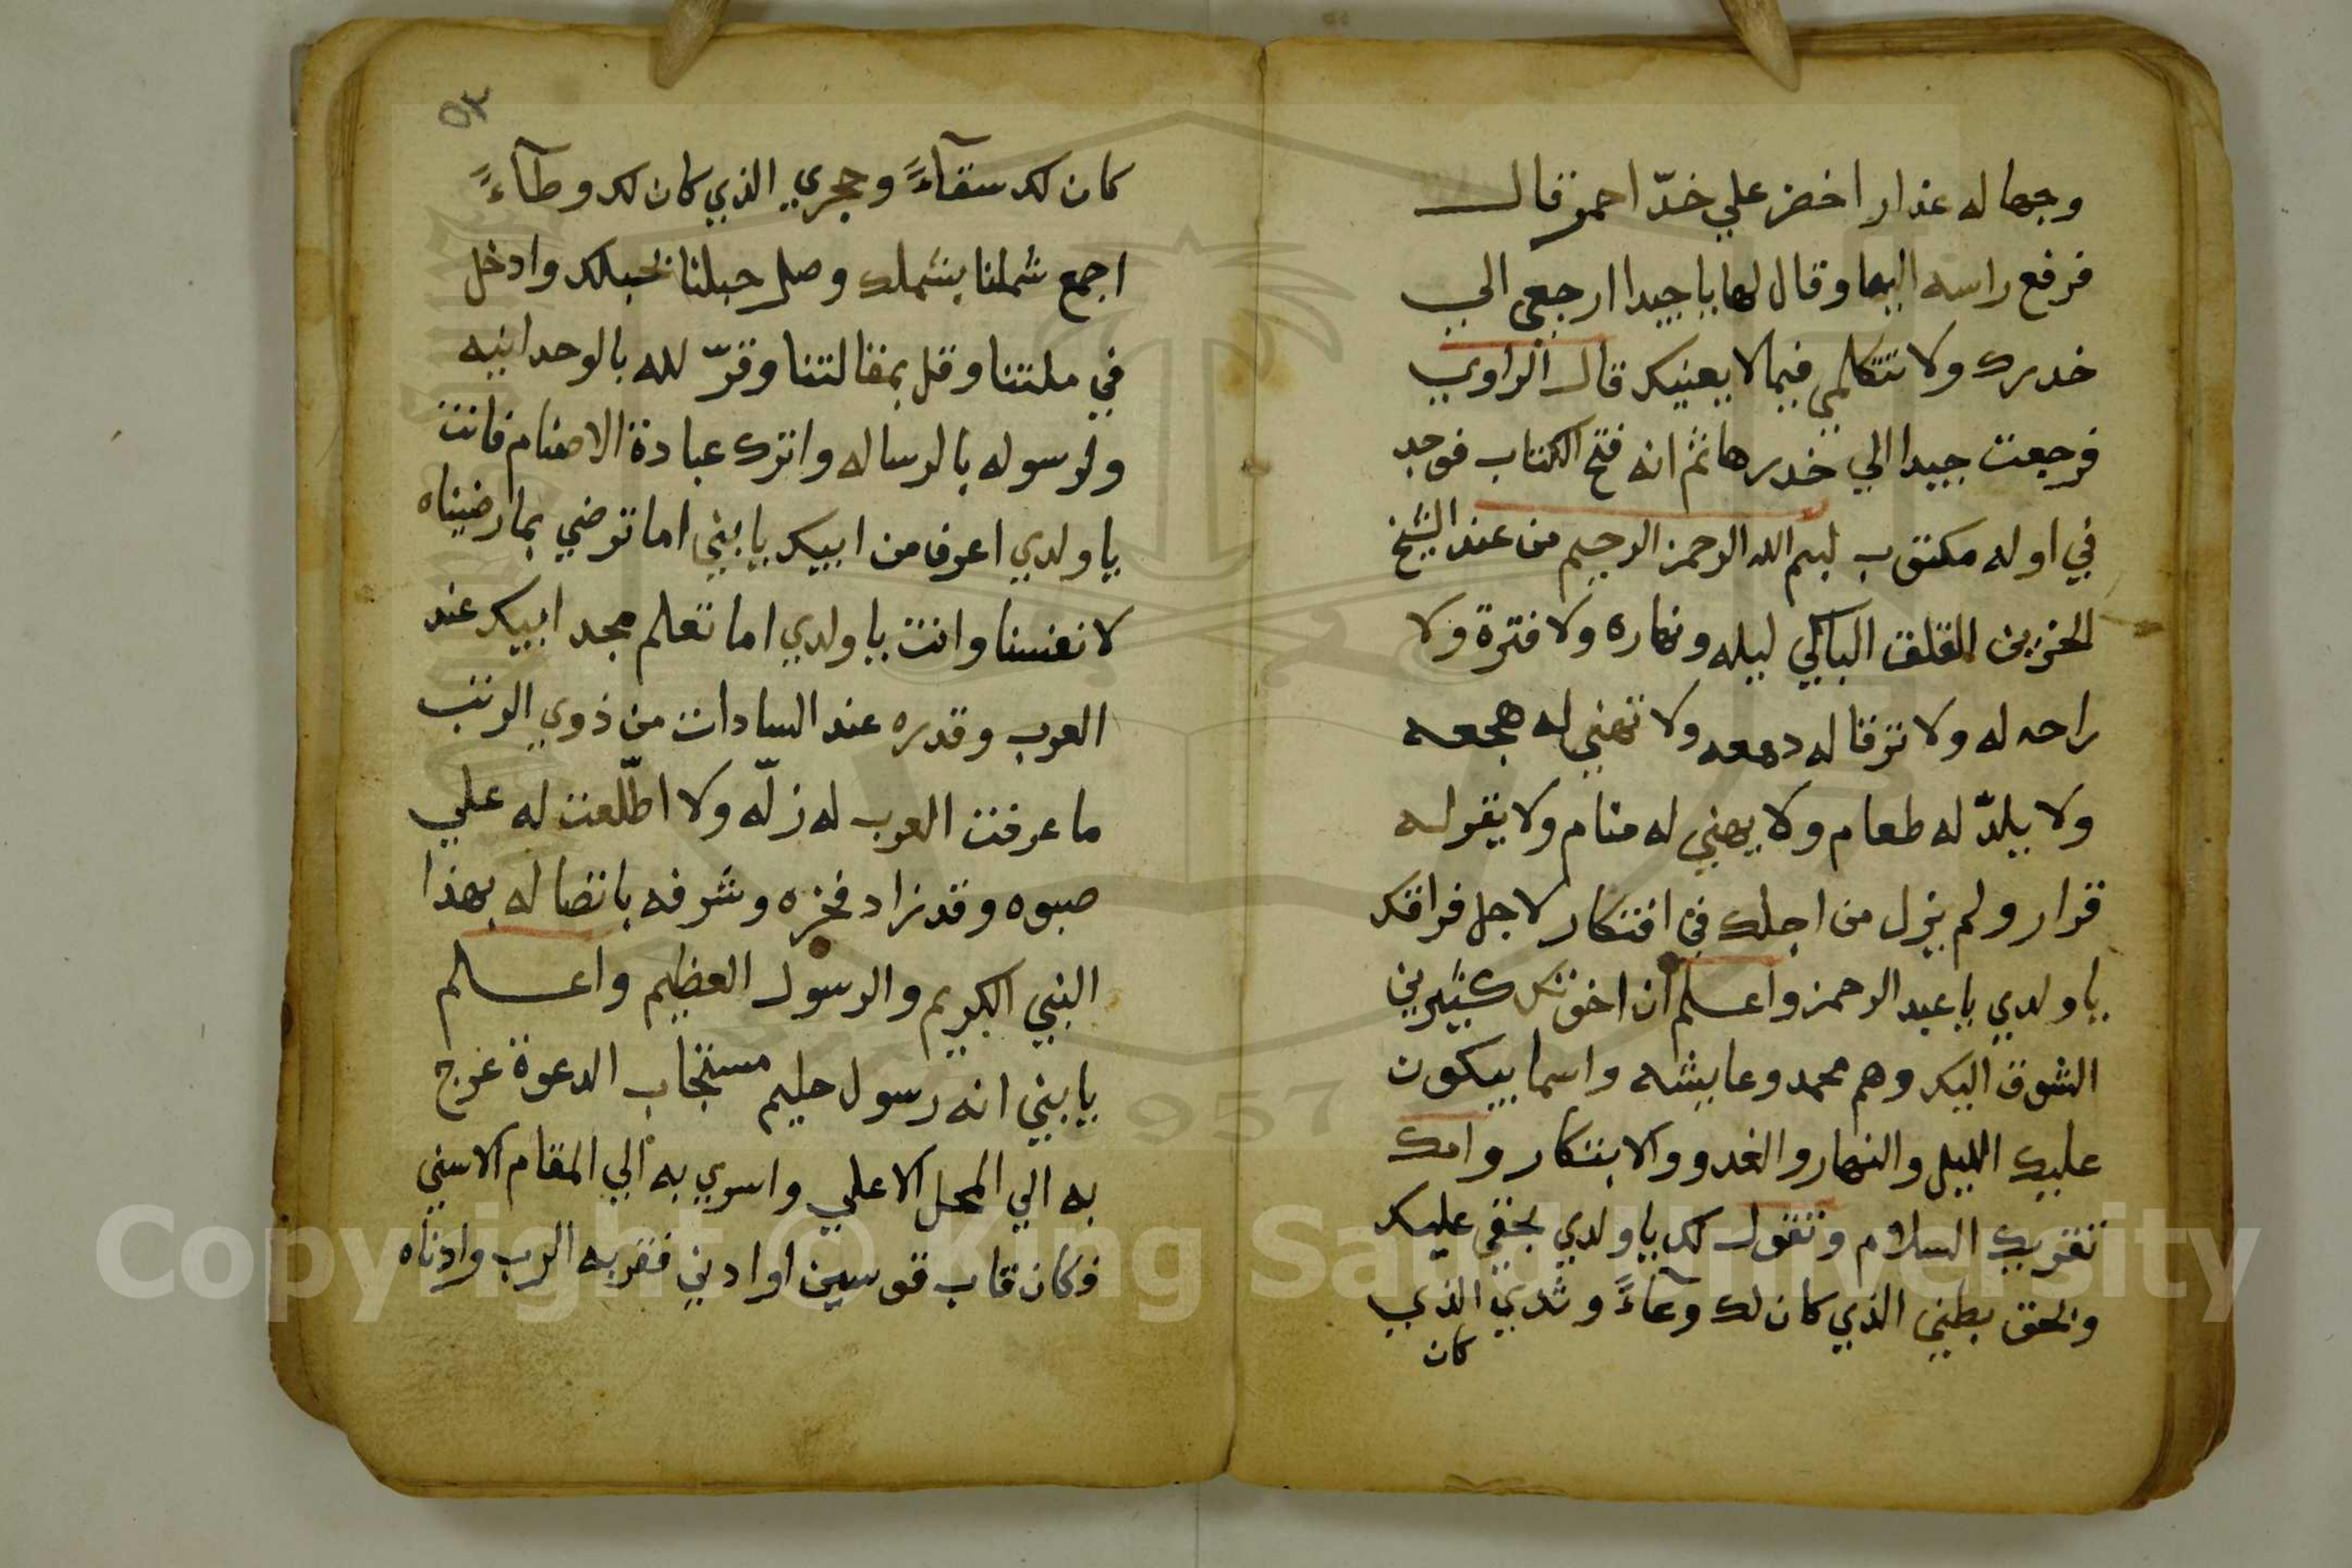 وجها له عذار اخضر علي خدّ احمر قال
فرفع راسه اليها وقال لها يا جيدا ارجعي الي
خدرك ولا تتكلمي فيما لا يعنيك قال الراوي
فرجعت جيدا الي خدرها ثم انه فتح الكتاب فوجد
في اوله مكتوب بسم الله الرحمن الرحيم من عند الشيخ
الحزين القلق الباكي ليله ونهاره ولا فترة ولا
راحه له ولا ترقا له دمعه ولا تهني له هجعه
ولا يلذّ له طعام ولا يهني له منام ولا يقر له
قرار ولم يزل من اجلك في افتكار لاجل فراقك
يا ولدي يا عبد الرحمن واعلم ان اخوتك كثيرين
الشوق اليك وهم محمد وعايشه واسما يبكون
عليك الليل والنهار والغدو والابتكار وامك
تقريك السلام وتقول لك يا ولدي بحقي عليك
وبحق بطني الذي كان لك وعآءً وثدي الذي
كان
٥٣
كان لك سقآءً وحجري الذي كان لك وطآءً
اجمع شملنا بشملك وصل حبلنا بحبلك وادخل
في ملتنا وقل بمقالتنا وقرّ لله بالوحدانيه
ولرسوله بالرساله واترك عبادة الاصنام فانت
يا ولدي اعرف من ابيك يا بني اما ترضي بما رضيناه
لانفسنا وانت يا ولدي اما تعلم مجد ابيك عند
العرب وقدره عند السادات من ذوي الرتب
ما عرفت العرب له زلّه ولا اطّلعت له علي
صبوه وقد زاد فخره وشرفه باتصاله بهذا
النبي الكريم والرسول العظيم واعلم
يا بني انه رسول حليم مستجاب الدعوة عرج
به الي المحل الاعلي واسري به الي المقام الاسني
فكان قاب قوسين او ادني فقربه الرب وادناه
Copyright © King Saud University
1957